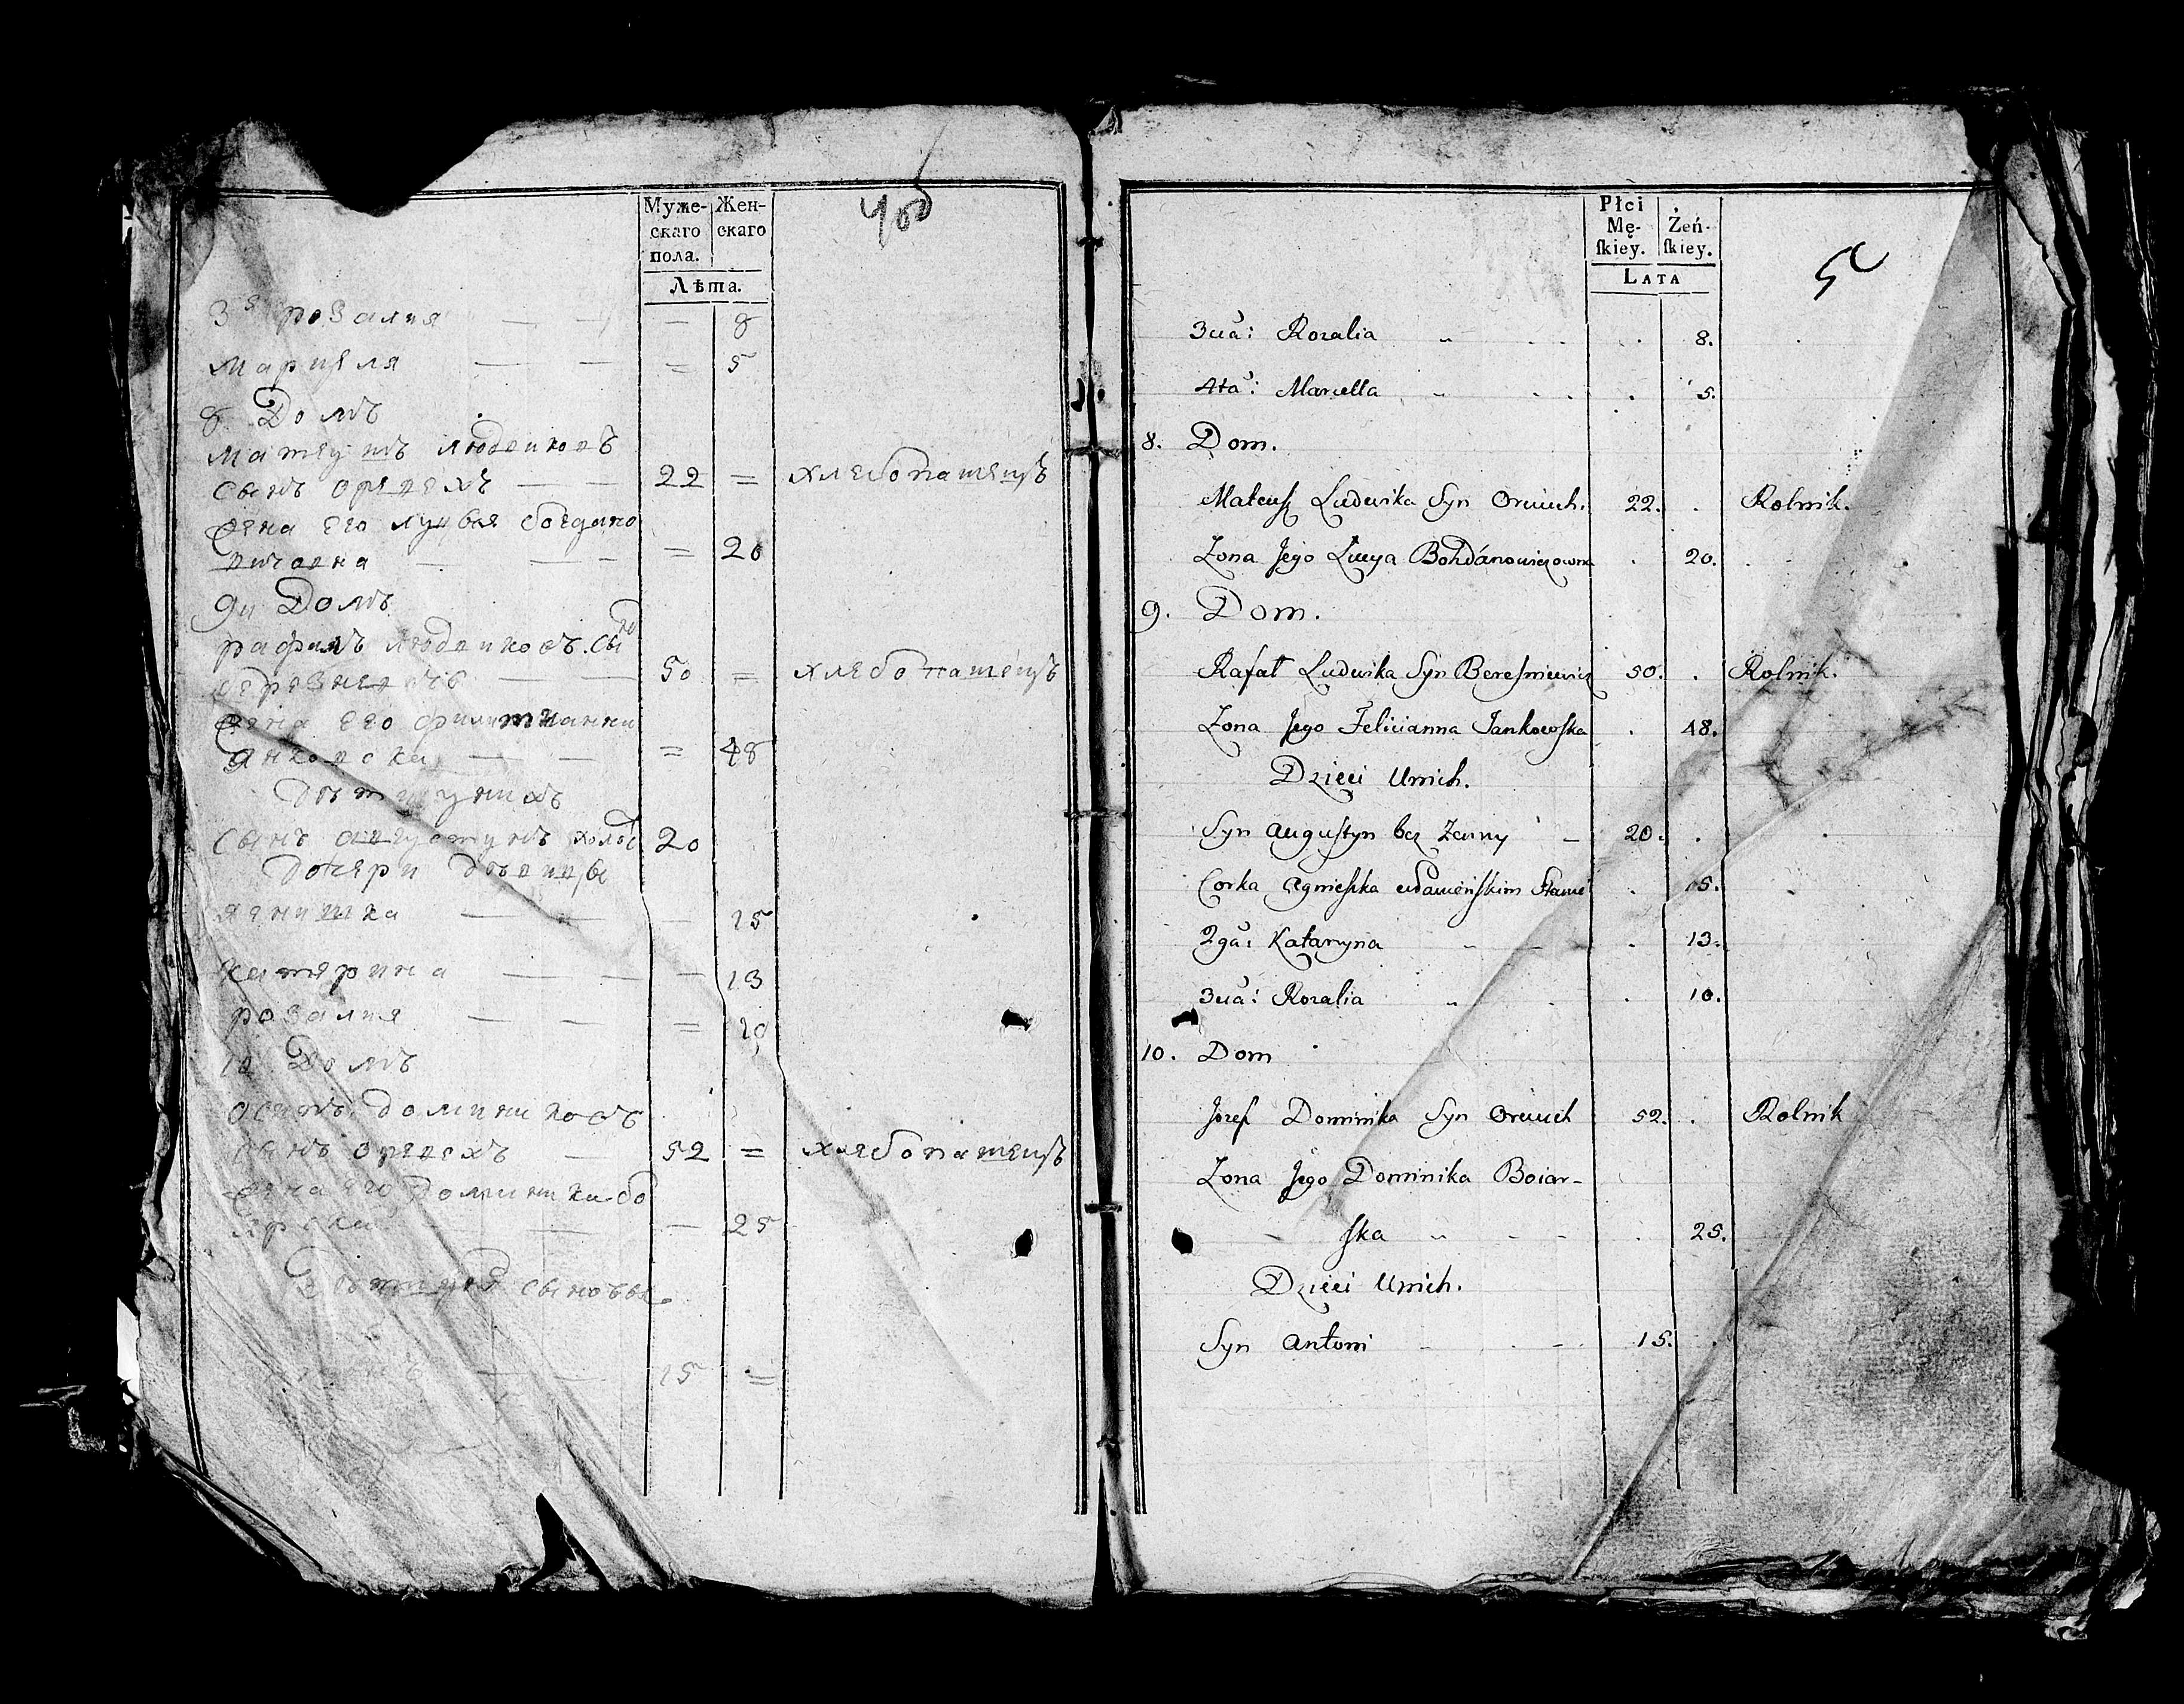 Муже-
скаго
пола.
Жен-
скаго
Лѣта.
3я розалия — — — 8
Марцеля — — = 5
8 Домъ
Матеушъ людвиковъ
сынъ орвехъ — — 22 = хлебопашецъ
жена его луцыя богдано
вичовна — — = 20
9й Домъ
рафалъ людвиковъ сынъ
березневичъ — — 50 = хлебопашецъ
жена его
янковска — — = 48
Дети у них
сынъ августынъ холост 20
дочери девицы
ягнишка — — — 15
катерина — — — 13
розалия — — = 10
10 Домъ
осипъ доминиковъ
сынъ орвехъ — 52 = хлебопашецъ
жена его доминика бо
ярска — — — 25
сыновья
15 =
Płci
Mę-
skiey.
Żeń-
skiey.
LATA
5
3cia: Rozalia 8.
4ta: Marcella 5.
8. Dom.
Mateusz Ludwika Syn Orwich. 22. Rolnik.
Zona Jego Lucya Bohdanowiczowna 20.
9. Dom.
Rafał Ludwika Syn Beresniewicz 50. Rolnik.
Zona Jego Felicianna Jankowska 48.
Dzieci Unich.
Syn Augustyn bez Zenny – 20.
Corka Agnieszka wPanieńskim Stanie 15.
2ga: Katarzyna 13.
3cia: Rozalia 10.
10. Dom
Jozef Dominika Syn Orwich 52. Rolnik
Zona Jego Dominika Boiar-
ska 25.
Dzieci Unich.
Syn Antoni 15.